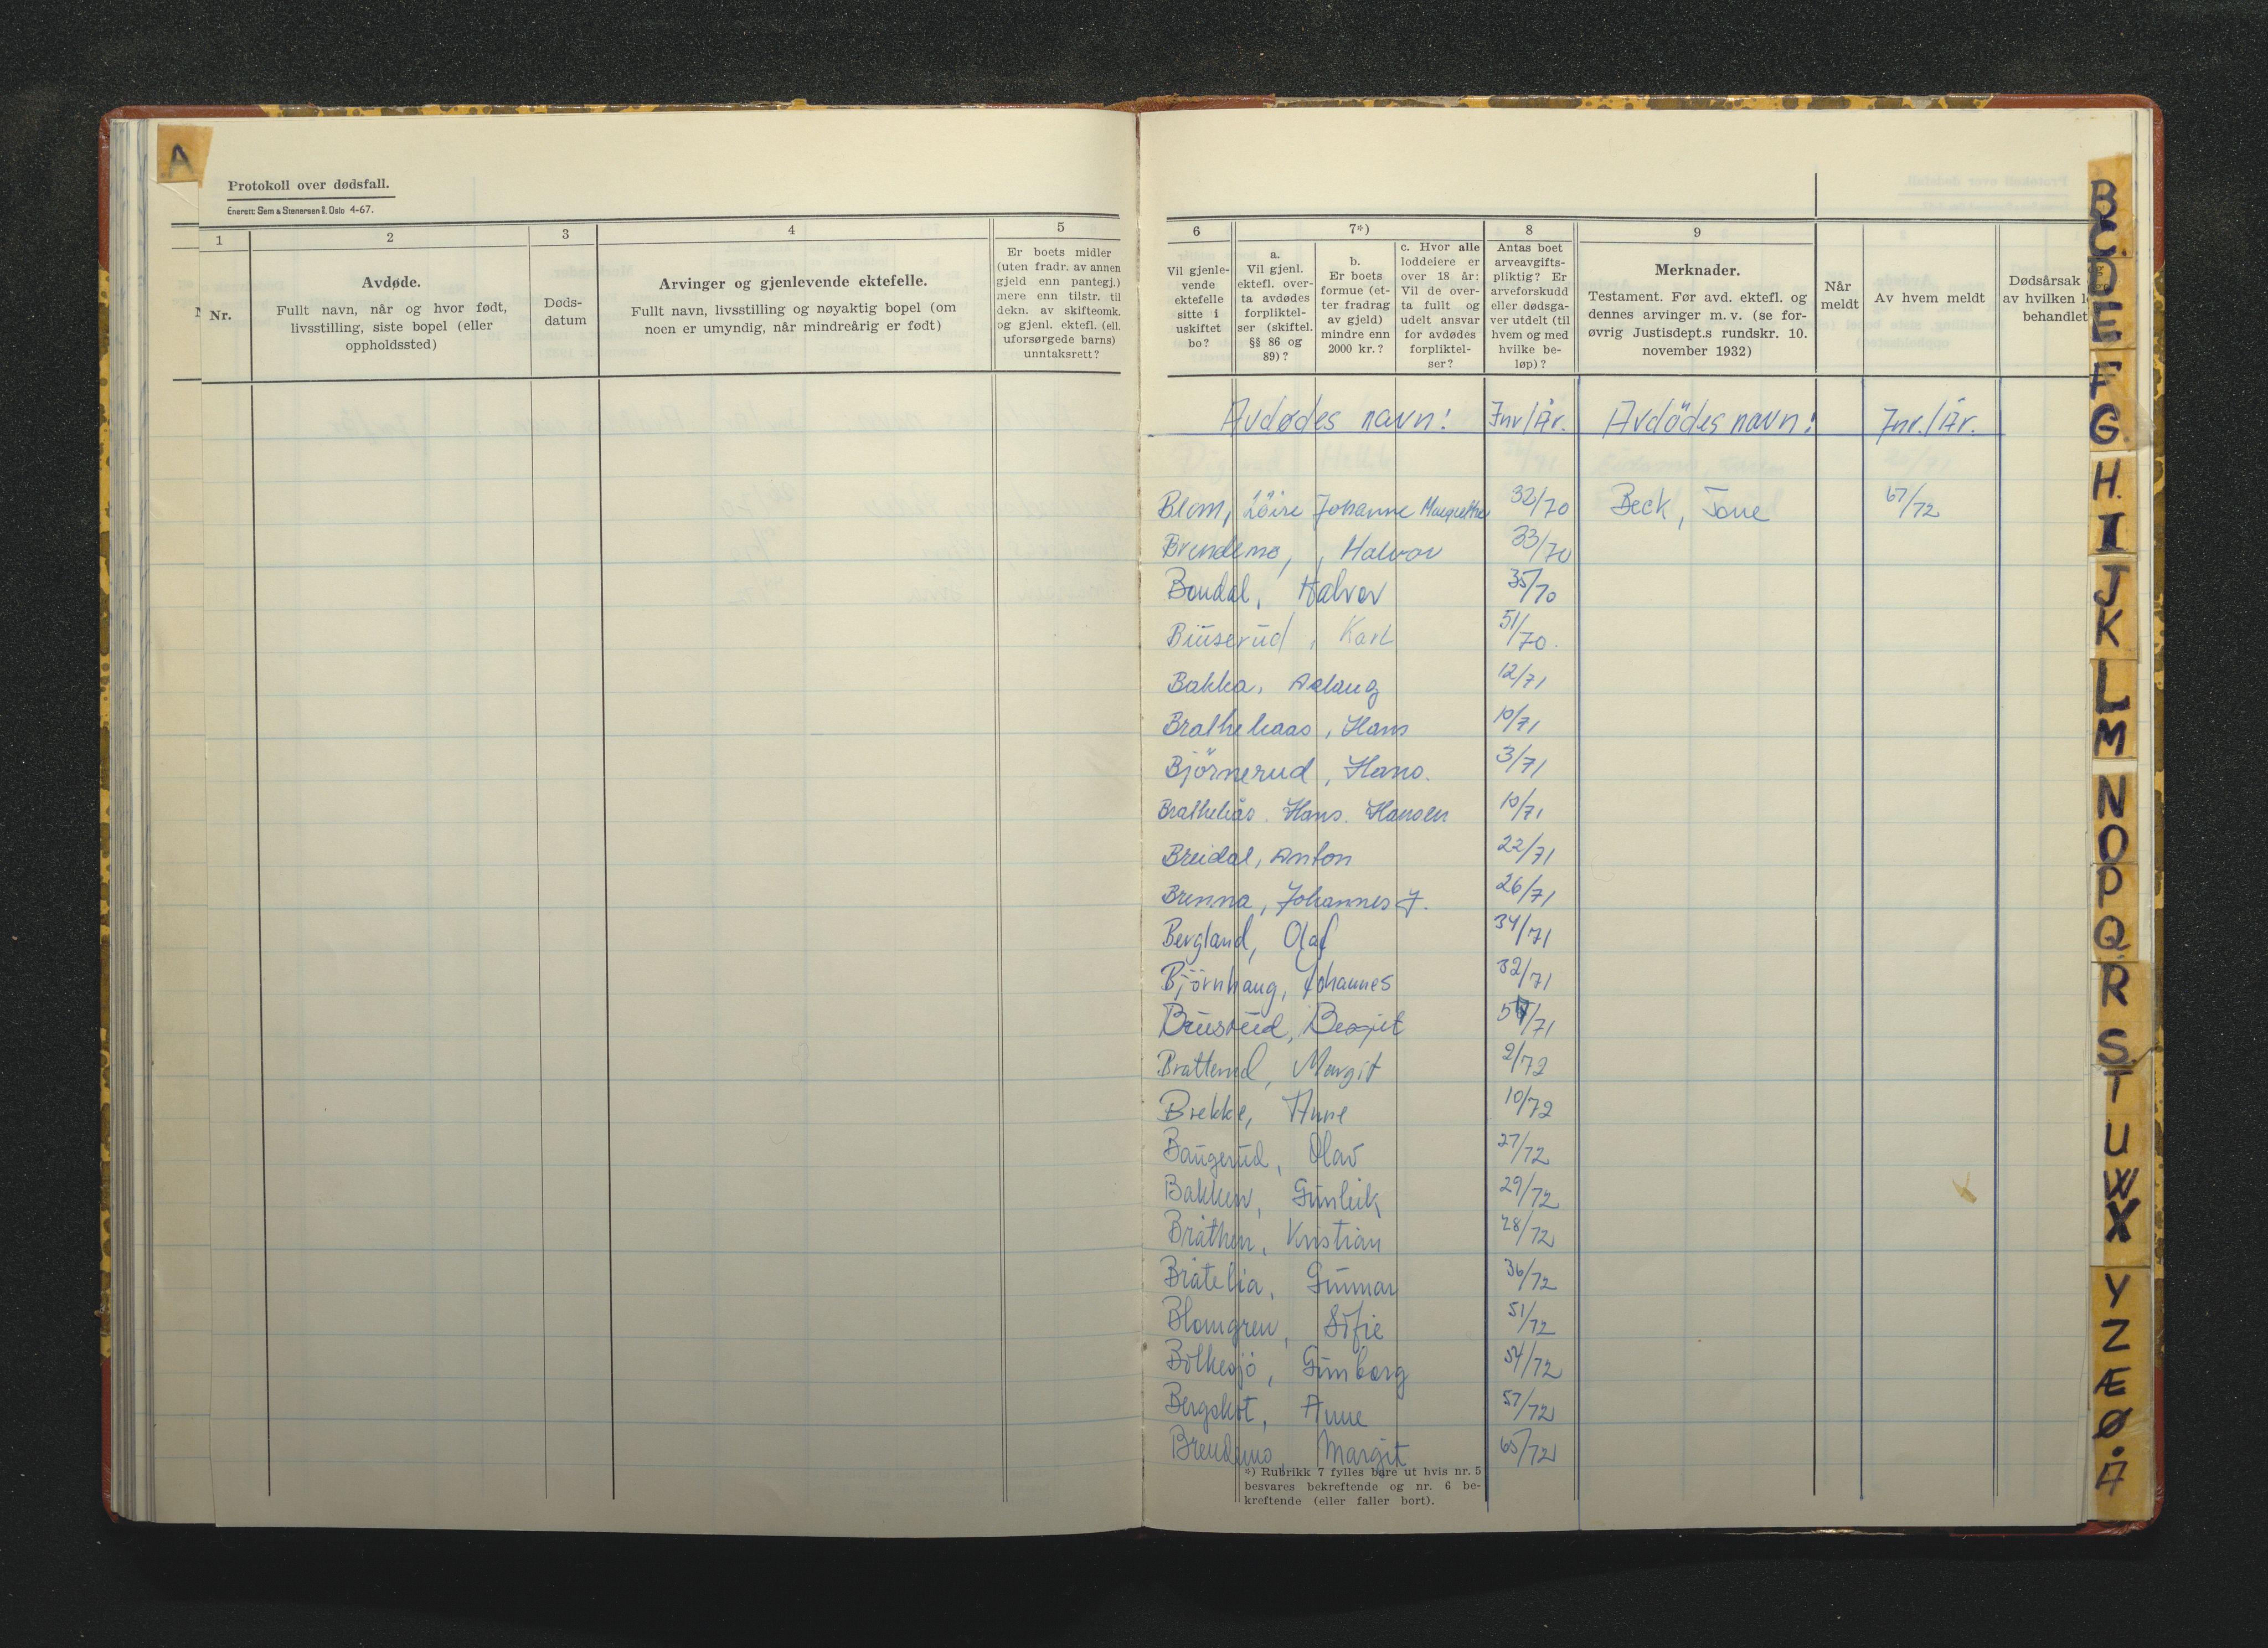 A
Protokoll over dødsfall.
Enerett: Sem & Stenersen Oslo 4-67.
1
2
3
4
5
Nr.
Avdøde.
Fullt navn, når og hvor født,
livsstilling, siste bopel (eller
oppholdssted)
Døds-
datum
Arvinger og gjenlevende ektefelle.
Fullt navn, livsstilling og nøyaktig bopel (om
noen er umyndig, når mindreårig er født)
Er boets midler
(uten fradr. av annen
gjeld enn pantegj.)
mere enn tilstr. til
dekn. av skifteomk.
og gjenl. ektefl. (ell.
uforsørgede barns)
unntaksrett?
6
7*)
8
9
Vil gjenle-
vende
ektefelle
sitte i
uskiftet
bo?
a.
Vil gjenl.
ektefl. over-
ta avdødes
forpliktel-
ser (skiftel.
§§ 86 og
89)?
b.
Er boets
formue (et-
ter fradrag
av gjeld)
mindre enn
2000 kr.?
c. Hvor alle
loddeiere er
over 18 år:
Vil de over-
ta fullt og
udelt ansvar
for avdødes
forpliktel-
ser?
Antas boet
arveavgifts-
pliktig? Er
arveforskudd
eller dødsga-
ver utdelt (til
hvem og med
hvilke be-
løp)?
Merknader.
Testament. Før avd. ektefl. og
dennes arvinger m. v. (se for-
øvrig Justisdept.s rundskr. 10.
november 1932)
Når
meldt
Av hvem meldt
Dødsårsak
av hvilken
behandlet
Avdødes navn: Jnr/År. Avdödes navn: Jnr./År.
Blom, Johanne 32/70 Beck, Tone 67/72
Brendemo, Halvor 33/70
Bondal, Halvor 35/70
Buserud, Karl 51/70.
Bakka, Aslaug 12/71
Hans 10/71
Björnerud, Hans. 3/71
Hans. Hansen 10/71
Breidal, Anton 22/71
Brenna, Johannes J. 26/71
Bergland, Olaf 34/71
Björnhaug, Johannes 32/71
Busrud, Bergit /71
Bratterud, Margit 2/72
Brekke, Anne 10/72
Baugerud, Olav 27/72
Bakken, Gunleik 29/72
Bråthen, Kristian 28/72
Bråtelia, Gunnar 36/72
Blomgren, Sofie 51/72
Bolkesjö, Gunborg 54/72
Bergskot, Anne 57/72
Brendemo, Margit 65/72
*) Rubrikk 7 fylles bare ut hvis nr. 5
besvares bekreftende og nr. 6 be-
kreftende (eller faller bort).
B
C
D
E
F
G
H
I
J
K
L
M
N
O
P
Q
R
S
T
U
W
X
Y
Z
Æ
Ø
Å